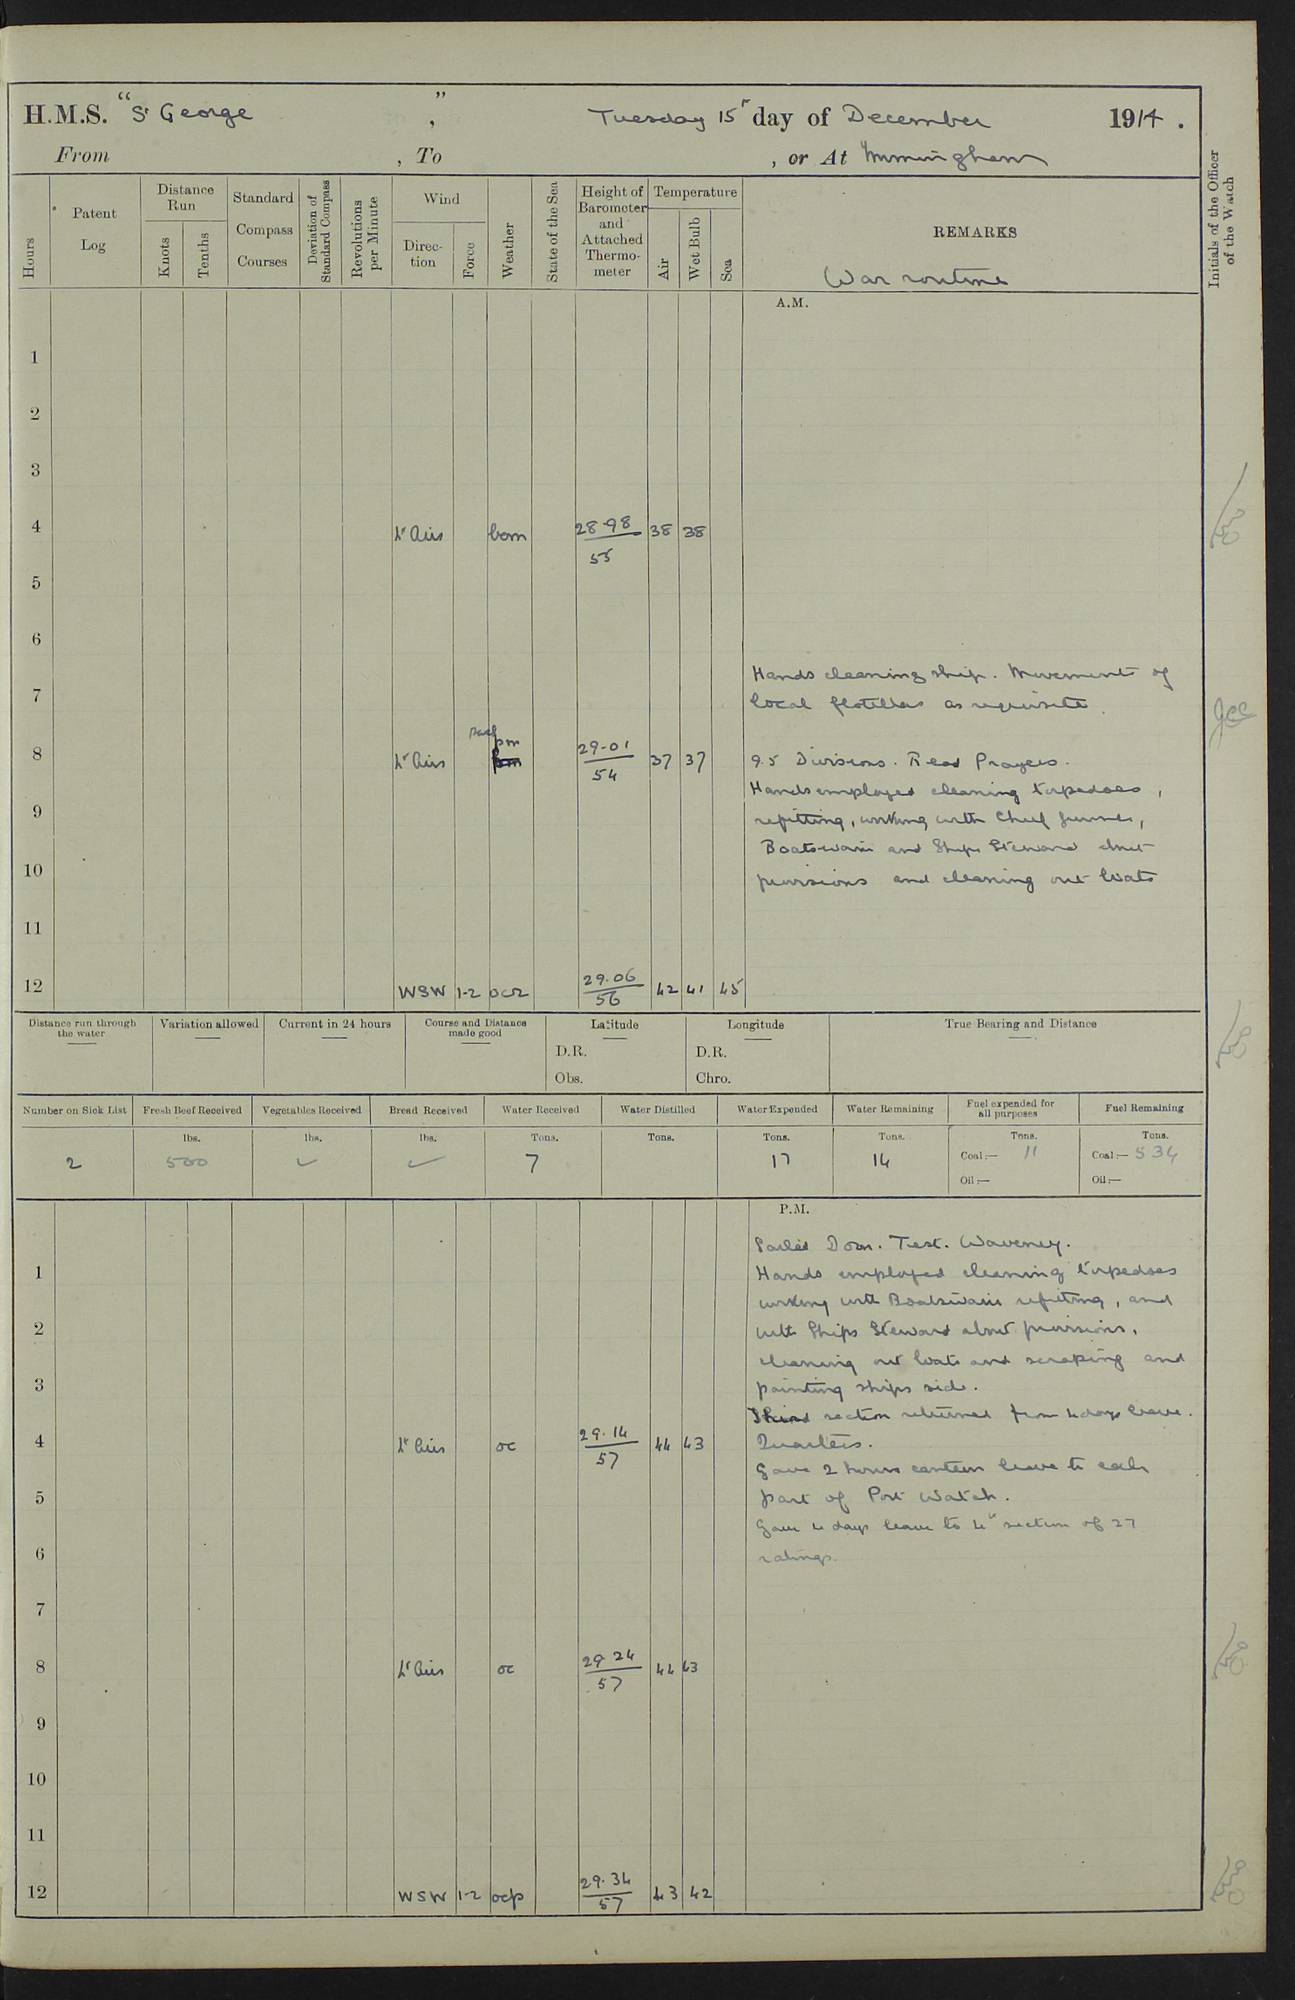 H.M.S. "St George", Tuesday 15th day of December 1914.
From , To , or At Immingham
Hours
Patent Log
Distance Run
Knots
Tenths
Standard Compass Courses
Deviation of Standard Compass
Revolutions per Minute
Wind
Direc-tion
Force
Weather
State of the Sea
Height of Barometer and Attached Thermo-meter
Temperature
Air
Wet Bulb
Sea
REMARKS
War routine
Initials of the Officer of the Watch
A.M.
1
2
3
4 Lt Airs bcm 28.98 38 38
55
5
6
Hands cleaning ship. Movements of
7
local flotillas as requisite.
pm
8 Lt Airs 29.01 37 37 9.5 Divisions. Read Prayers.
54
Hands employed cleaning torpedoes,
9
refitting, working with Chief Gunner,
Boatswain and Ships Steward about
10
provisions and cleaning out boats
11
12 WSW 1-2 ocr 29.06 42 41 45
56
Distance run through the water
Variation allowed
Current in 24 hours
Course and Distance made good
Latitude
D.R.
Obs.
Longitude
D.R.
Chro.
True Bearing and Distance
Number on Sick List
Fresh Beef Received
Vegetables Received
Bread Received
Water Received
Water Distilled
Water Expended
Water Remaining
Fuel expended for all purposes
Fuel Remaining
lbs. lbs. lbs. Tons. Tons. Tons. Tons. Tons. Tons.
2 500 ✓ ✓ 7 17 14 Coal:— 11 Coal:— 534
Oil:— Oil:—
P.M.
Sailed Doon. Test. Waveney.
1 Hands employed cleaning torpedoes
working with Boatswain refitting, and
2 with Ships Steward about provisions,
cleaning out boats and scraping and
3 painting ships side.
Third section returned from 4 days leave.
4 Lt Airs oc 29.14 44 43 Quarters.
57
Gave 2 hours canteen leave to each
5 part of Port Watch.
Gave 4 days leave to 4th section of 27
6 ratings.
7
8 Lt Airs oc 29.24 44 43
57
9
10
11
12 WSW 1-2 ocp 29.34 43 42
57